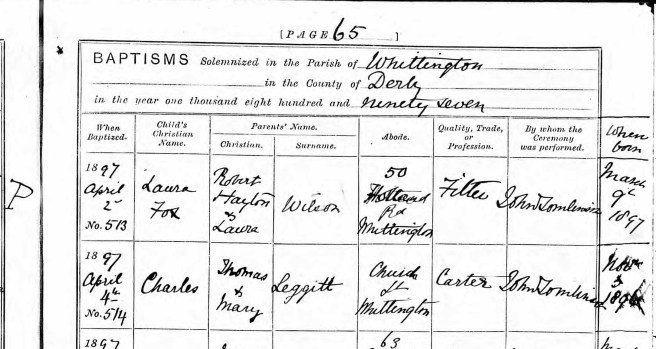 [PAGE 65]
BAPTISMS Solemnized in the Parish of Whittington
in the County of Derby
in the year one thousand eight hundred and ninety seven
When Baptized. Child's Christian Name. Parents' Name. Christian. Surname. Abode. Quality, Trade, or Profession. By whom the Ceremony was performed. When born
P
1897 April 2 No. 513
Laura Fox
Robert Hayton & Laura
Wilson
50 Holland Rd Whittington
Fitter
John Tomlinson
March 9 1897
1897 April 4 No. 514
Charles
Thomas & Mary
Leggitt
Church St Whittington
Carter
John Tomlinson
Nov 3
1897
63